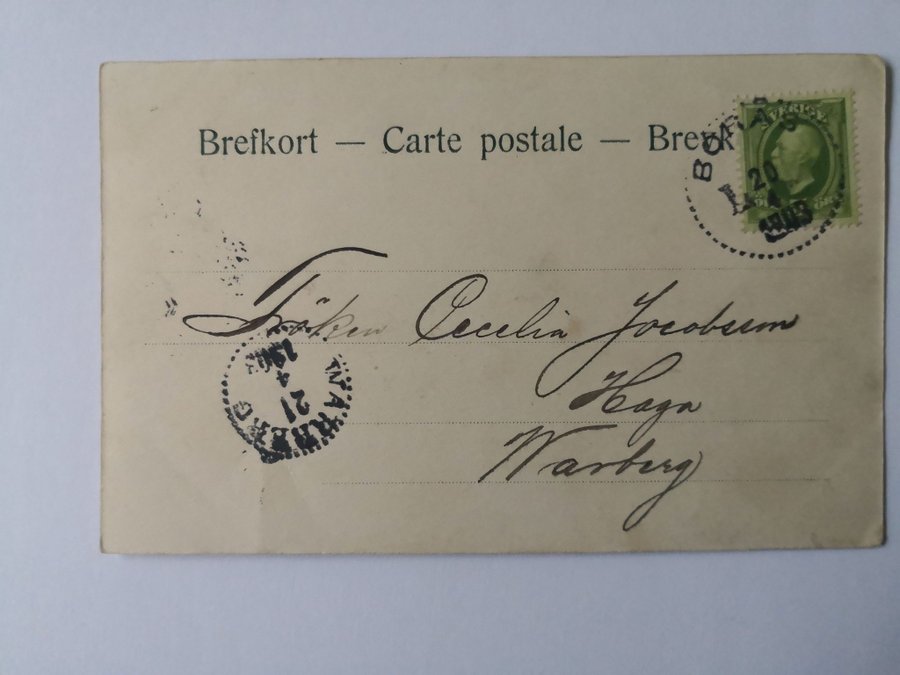 Brefkort — Carte postale — Brevk
SVERIGE
BORÅS
20
4
1903
Fröken Cecelia Jocobsson
Haga
Warberg
WARBERG
21
4
1903